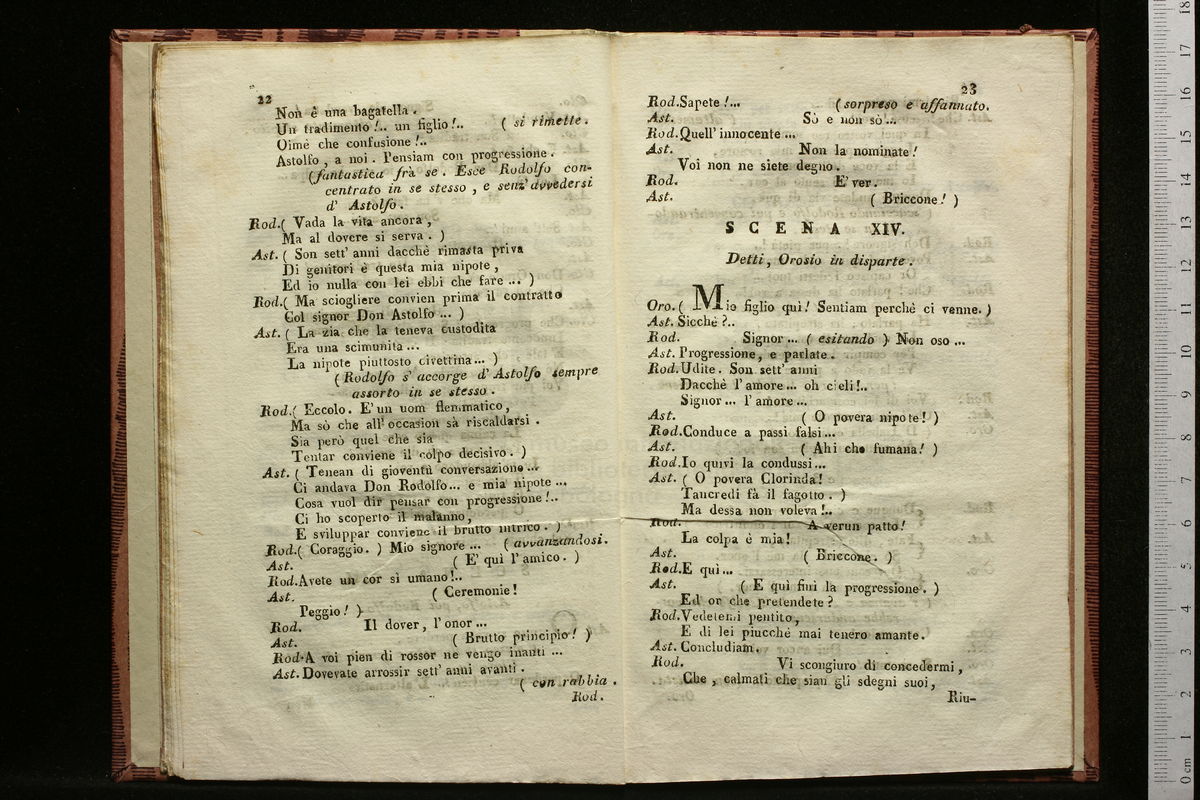 22
Non è una bagatella .
Un tradimento !.. un figlio !.. ( si rimette .
Oimè che confusione !..
Astolfo , a noi . Pensiam con progressione .
(fantastica frà se . Esce Rodolfo con-
centrato in se stesso , e senz' avvedersi
d' Astolfo .
Rod.( Vada la vita ancora ,
Ma al dovere si serva . )
Ast. ( Son sett' anni dacchè rimasta priva
Di genitori è questa mia nipote ,
Ed io nulla con lei ebbi che fare ... )
Rod.( Ma sciogliere convien prima il contratto
Col signor Don Astolfo ... )
Ast. ( La zia che la teneva custodita
Era una scimunita ...
La nipote piuttosto civettina ... )
( Rodolfo s' accorge d' Astolfo sempre
assorto in se stesso .
Rod.( Eccolo . E' un uom flemmatico ,
Ma sò che all' occasion sà riscaldarsi .
Sia però quel che sia
Tentar conviene il colpo decisivo . )
Ast. ( Tenean di gioventù conversazione ...
Ci andava Don Rodolfo... e mia nipote ...
Cosa vuol dir pensar con progressione !..
Ci ho scoperto il malanno,
E sviluppar conviene il brutto intrico . )
Rod.( Coraggio . ) Mio signore ... ( avvanzandosi.
Ast. ( E' quì l' amico . )
Rod.Avete un cor sì umano!..
Ast. ( Ceremonie !
Peggio ! )
Rod. Il dover , l' onor ...
Ast. ( Brutto principio ! )
Rod.A voi pien di rossor ne vengo inanti ...
Ast. Dovevate arrossir sett' anni avanti .
( con rabbia .
Rod.
23
Rod.Sapete !... ( sorpreso e affannato.
Ast. Sò e non sò ...
Rod.Quell' innocente ...
Ast. Non la nominate !
Voi non ne siete degno .
Rod. E' ver .
Ast. ( Briccone ! )
SCENA XIV.
Detti , Orosio in disparte .
Oro. ( Mio figlio quì ! Sentiam perchè ci venne. )
Ast. Sicchè ?..
Rod. Signor ... ( esitando ) Non oso ...
Ast. Progressione, e parlate .
Rod.Udite . Son sett' anni
Dacchè l' amore ... oh cieli !..
Signor ... l' amore ...
Ast. ( O povera nipote ! )
Rod.Conduce a passi falsi ...
Ast. ( Ahi che fumana ! )
Rod.Io quivi la condussi ...
Ast. ( O povera Clorinda !
Tancredi fà il fagotto . )
Ma dessa non voleva !..
Rod. A verun patto !
La colpa è mia !
Ast. ( Briccone . )
Rod.E quì ...
Ast. ( E quì finì la progressione . )
Ed or che pretendete ?
Rod.Vedetemi pentito,
E di lei piucchè mai tenero amante.
Ast. Concludiam.
Rod. Vi scongiuro di concedermi ,
Che , calmati che sian gli sdegni suoi,
Riu-
0 cm 1 2 3 4 5 6 7 8 9 10 11 12 13 14 15 16 17 18